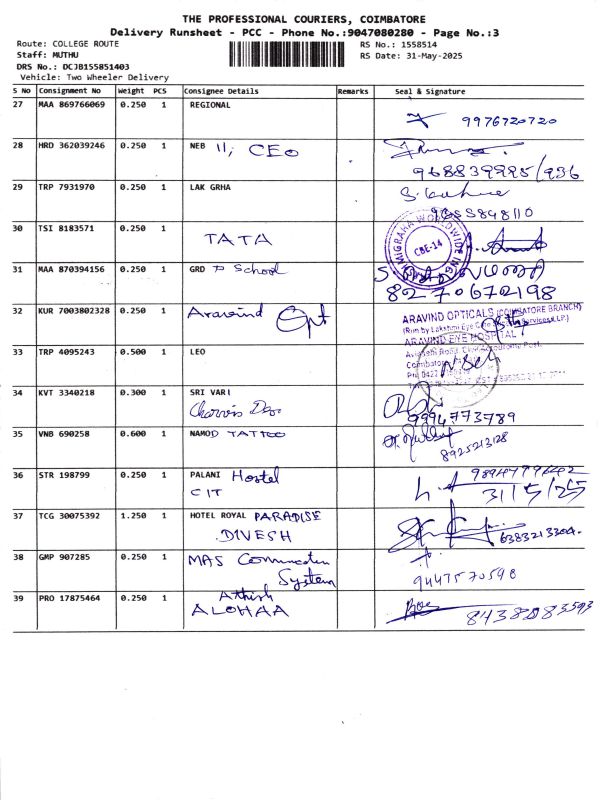 THE PROFESSIONAL COURIERS, COIMBATORE
Delivery Runsheet - PCC - Phone No.:9047080280 - Page No.:3
Route: COLLEGE ROUTE RS No.: 1558514
Staff: MUTHU RS Date: 31-May-2025
DRS No.: DCJB155851403
Vehicle: Two Wheeler Delivery
S No Consignment No Weight PCS Consignee Details Remarks Seal & Signature
27 MAA 869766069 0.250 1 REGIONAL
9976720720
28 HRD 362039246 0.250 1 NEB 11, CEO
9688399995/936
29 TRP 7931970 0.250 1 LAK GRHA
30 TSI 8183571 0.250 1 TATA
CBE-14
31 MAA 870394156 0.250 1 GRD P School
8270672198
32 KUR 7003802328 0.250 1 Aravind Opt
ARAVIND OPTICALS (COIMBATORE BRANCH)
ARAVIND EYE HOSPITAL
33 TRP 4095243 0.500 1 LEO
34 KVT 3340218 0.300 1 SRI VARI
9994773789
35 VNB 690258 0.600 1 NAMOD TATTOO
8925213128
36 STR 198799 0.250 1 PALANI Hostel
CIT
31/5/25
37 TCG 30075392 1.250 1 HOTEL ROYAL PARADISE
DIVESH
6383213304
38 GMP 907285 0.250 1 MAS Communication
System
9447570598
39 PRO 17875464 0.250 1 Athish
ALOHAA
8438083593